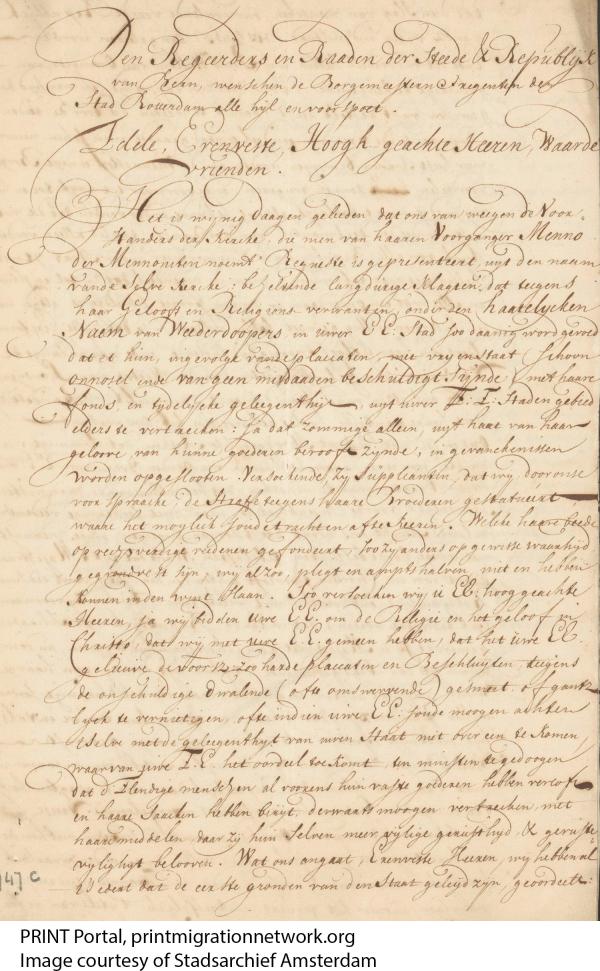 Den Regeerders en Raaden der Steede & Republijk
van Bern, wenschen de Borgemeesteren & regenten der
Stad Rotterdam alle hijl en voorspoet.
Edele, Erenveste, Hoogh geachte Heeren, Waarde
vrienden.
Het is wijnig daagen geleden dat ons van weegen de Voor-
standers der Kercke, die men van haaren Voorganger Menno
der Mennoniten noemt Requeste is gepresenteert, uijt den naam
vande selve Kercke; behelsende langduirige klagten, dat teegens
haar Geloofs en Religions verwanten, onder den haatelijcken
Naem van Weederdoopers, in uwer E E: Stad soo daanig word gewoed
dat et hun, ingevolge vande placcaten, met vrijen staat (schoon
onnosel ende van geen misdaaden beschuldigt sijnde) met haare
fonds, en tijdelijcke geleegenthijt, uijt uwer E: E: Staden gebied
elders te vertrecken: Ja dat zommige alleen, uijt haat van haar
geloove van hunne goederen berooft zijnde, in gevanckenissen
worden opgeslooten. Versoekende zij Supplianten, dat wij door onse
voor spraacke, de Straffe teegens haare Broederen gestatueert
waare het mogelick soude trachten af te keeren. Welke haare beede
op rechtveerdige reedenen gefondeert, zoo zij anders op gewisse waarhijd
gegrondvest sijn, wij alzoo, pligt en ampts halven, niet en hebben
konnen inden wint slaan. Soo versoecken wij u EE: hoog geachte
Heeren, ja wij bidden uwe E.E. om de Religie en het geloof in
Christo, dat wij met uwe E.E. gemeen hebben, dat het uwe EE.
gelieve de voorsz: zoo harde placcaten en Beschluijten, teegens
de onschuldige dwalende (ofte omswervende) gesmeet, of gants
lijck te vernietigen, ofte indien uwe EE: soude moogen achten
t selve met de geleegenthijt van uwen Staat niet over een te komen,
waar van uwe E.E. het oordeel toe komt, ten minsten te gedoogen
dat d' Elendige menschen al voorens hun vaste goederen hebben verkoft
en haare Saacken hebben berijt, derwaarts moogen vertrecken, met
haare middelen, daar zij hun selven meer vijlige gerusthijd & geruste
vijlighijt belooven. Wat ons angaat, Erenveste Heeren, wij hebben al
t' Sedert dat de eerste gronden van den Staat geleijd zijn, geoordeelt:
147 c
PRINT Portal, printmigrationnetwork.org
Image courtesy of Stadsarchief Amsterdam